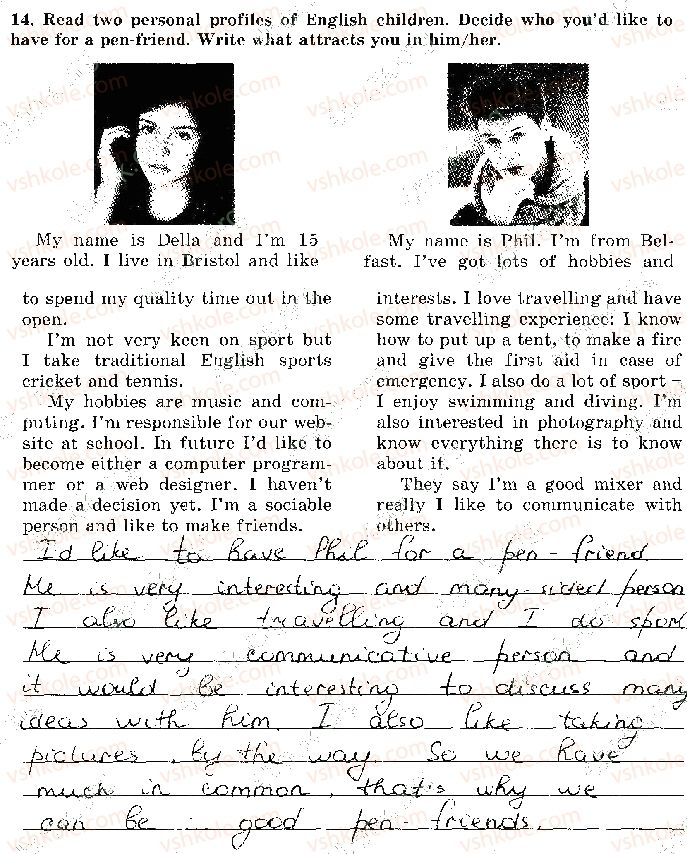 14. Read two personal profiles of English children. Decide who you'd like to
have for a pen-friend. Write what attracts you in him/her.
My name is Della and I'm 15
years old. I live in Bristol and like
to spend my quality time out in the
open.
I'm not very keen on sport but
I take traditional English sports
cricket and tennis.
My hobbies are music and com-
puting. I'm responsible for our web-
site at school. In future I'd like to
become either a computer program-
mer or a web designer. I haven't
made a decision yet. I'm a sociable
person and like to make friends.
My name is Phil. I'm from Bel-
fast. I've got lots of hobbies and
interests. I love travelling and have
some travelling experience: I know
how to put up a tent, to make a fire
and give the first aid in case of
emergency. I also do a lot of sport –
I enjoy swimming and diving. I'm
also interested in photography and
know everything there is to know
about it.
They say I'm a good mixer and
really I like to communicate with
others.
I'd like to have Phil for a pen-friend
He is very interesting and many-sided person
I also like travelling and I do sport
He is very communicative person and
it would be interesting to discuss many
ideas with him. I also like taking
pictures, by the way. So we have
much in common, that's why we
can be good pen friends.
vshkole.com